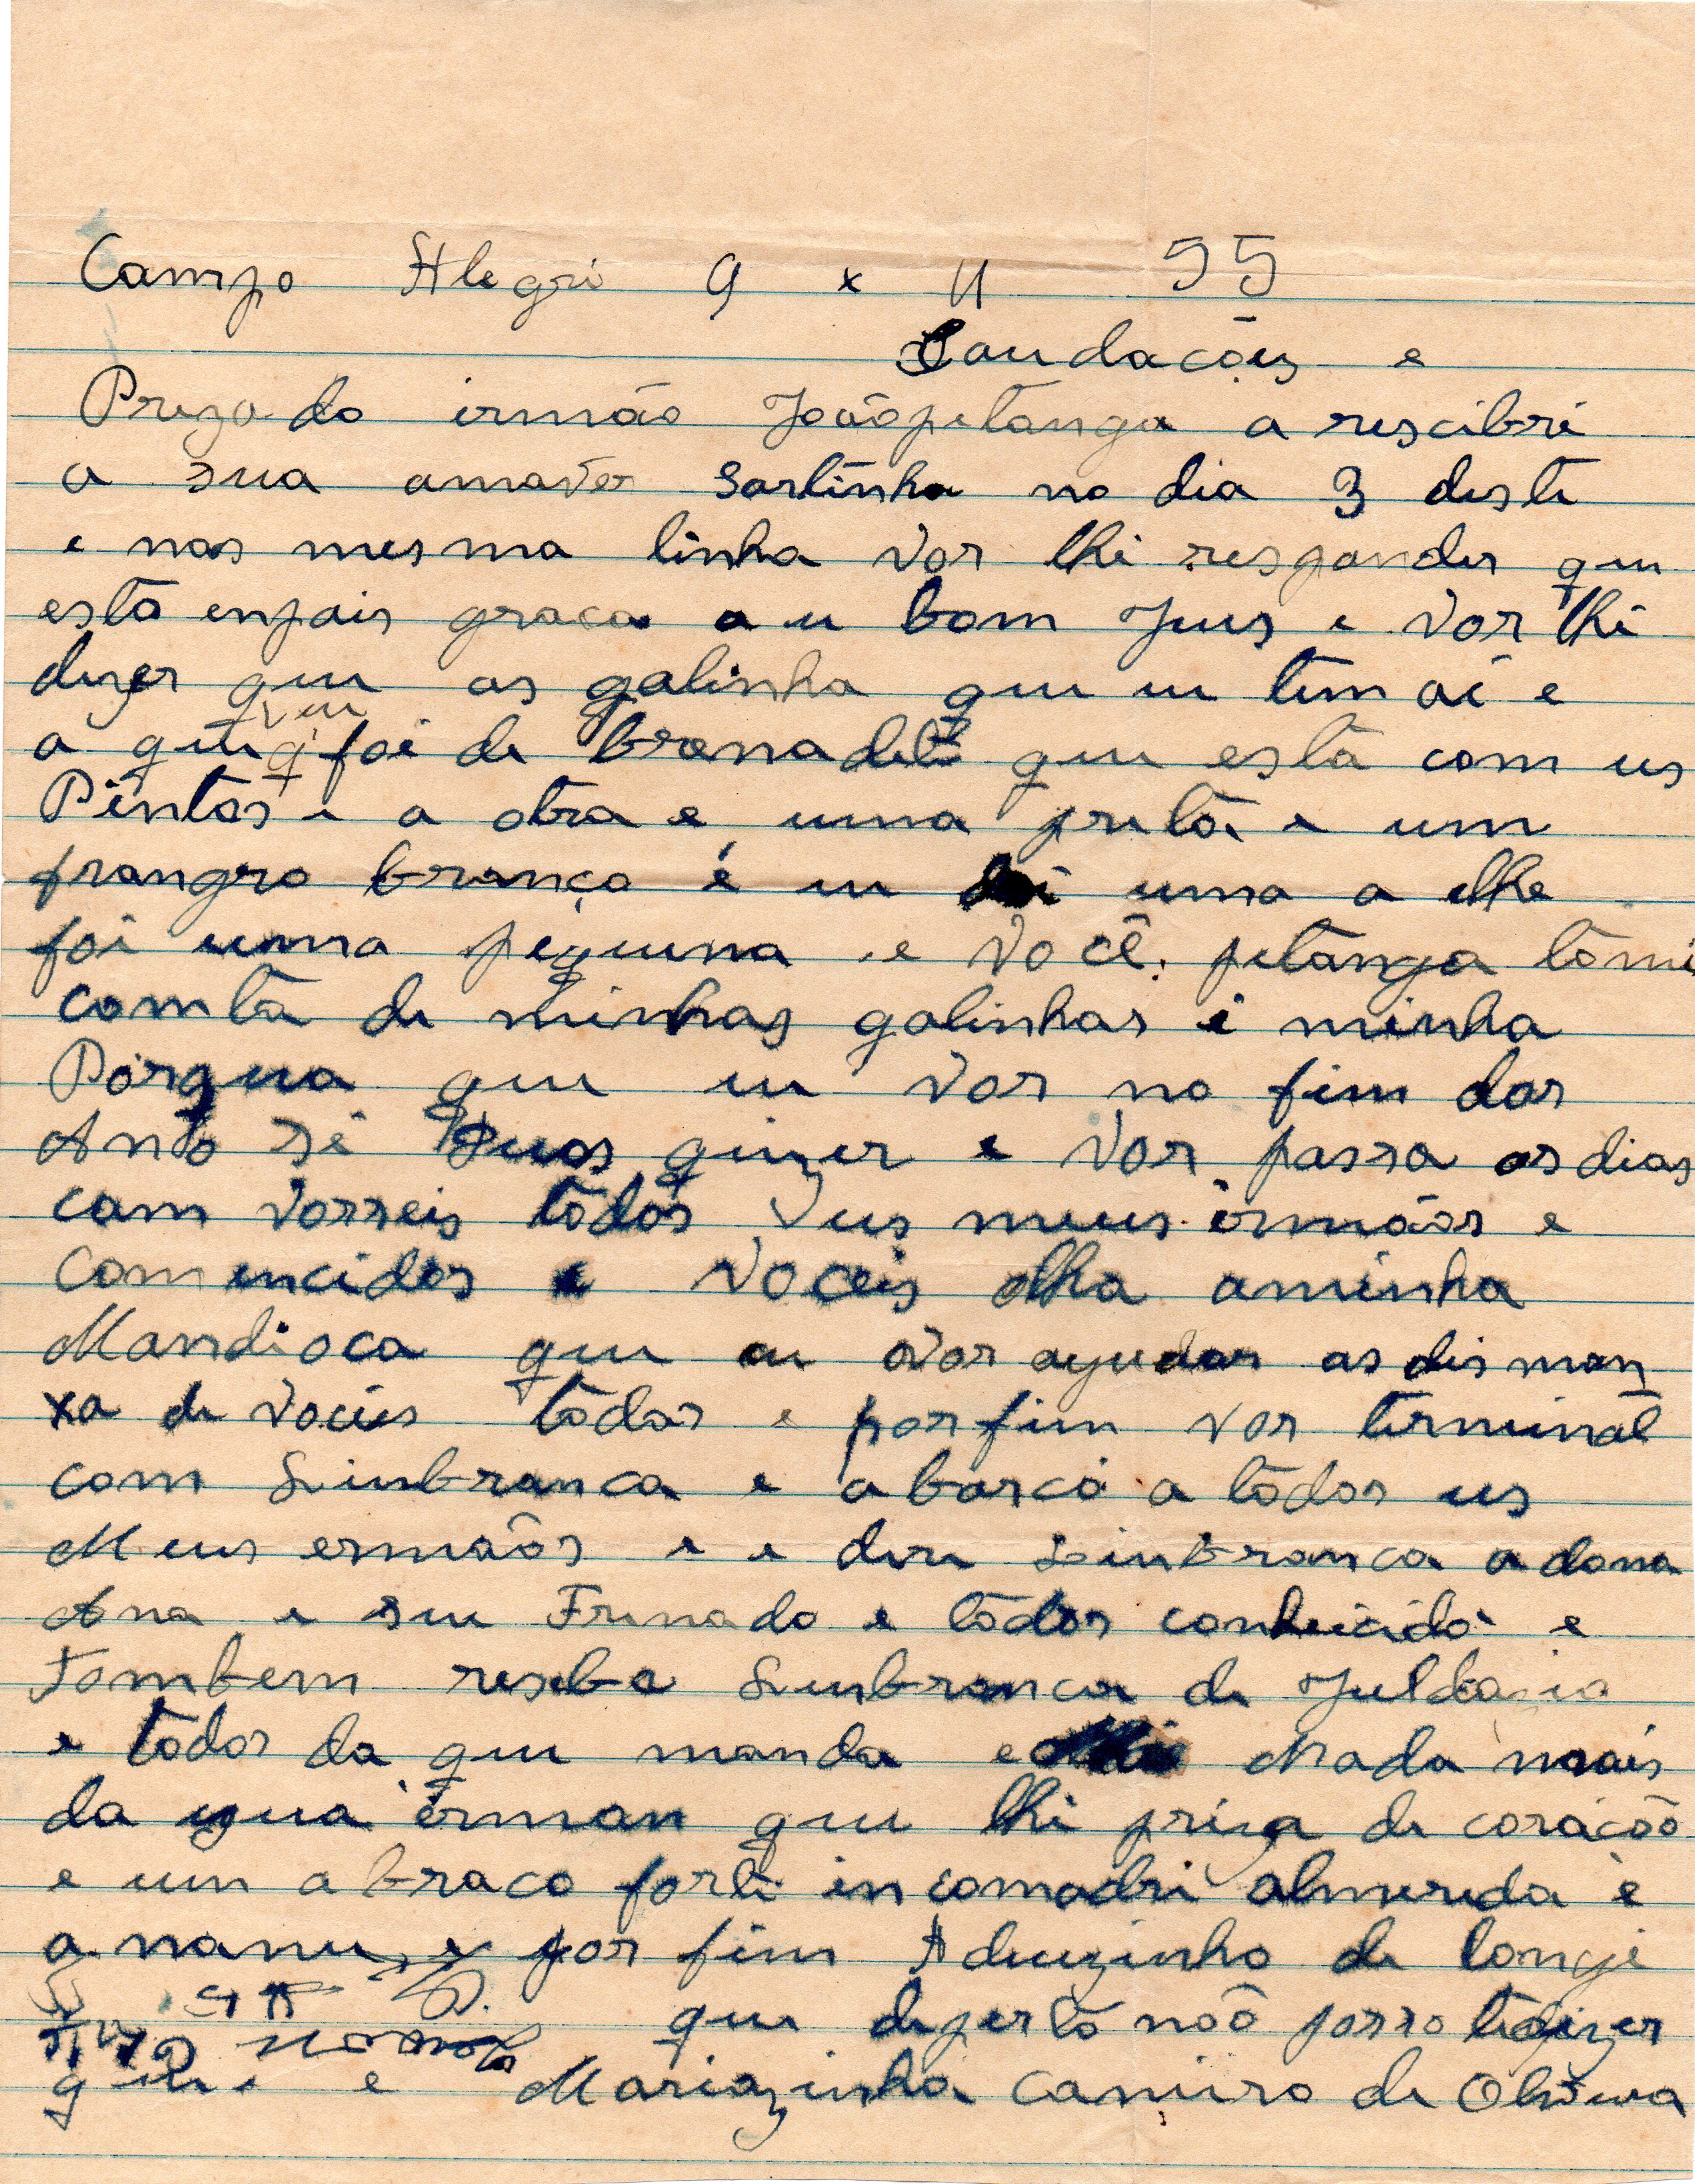 Campo Alegri 9 x 11 55
Saudacõis e
Prezado irmão joãopitanga a rescibri
a sua amaver sartinha no dia 3 desti
e nas mesma linha vor lhi responder que
está enpais graca a u bom jeus e vor lhi
dizer que as galinha que eu tem ai e
a que veu q foi de brenadeti que está com us
Pintos e a otra e uma preta e um
frangro branco é eu dei uma a elhe
foi uma pequena e você. pitanga tomi
comta de minhas galinhas i minha
Porqua que eu vor no fim dar
Ano si Deus quizer e vor passa os dias
com vorseis todos us meus irmãos e
Comencidos e voceis olha aminha
Mandioca que eu vor ayudar as disman
xa de voceis todos e por fim vor terminal
com Leinbranca e abarco a todos us
Meus ermãos e e deu Leinbranca a dona
Ana e seu Frenado e todos conheicido e
Tombem reseba Leinbranca de juldasia
e todos da que manda e Nada mais
da sua erman que lhi priza de coracão
e um abraco forti in comadri almereda e
a naneu e por fim Adeuzinho de longi
que deperto não posso tidizer
e Mariazinha Camiiro de Oliveira